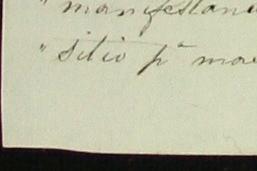 " manifestand
" sitio pª mo